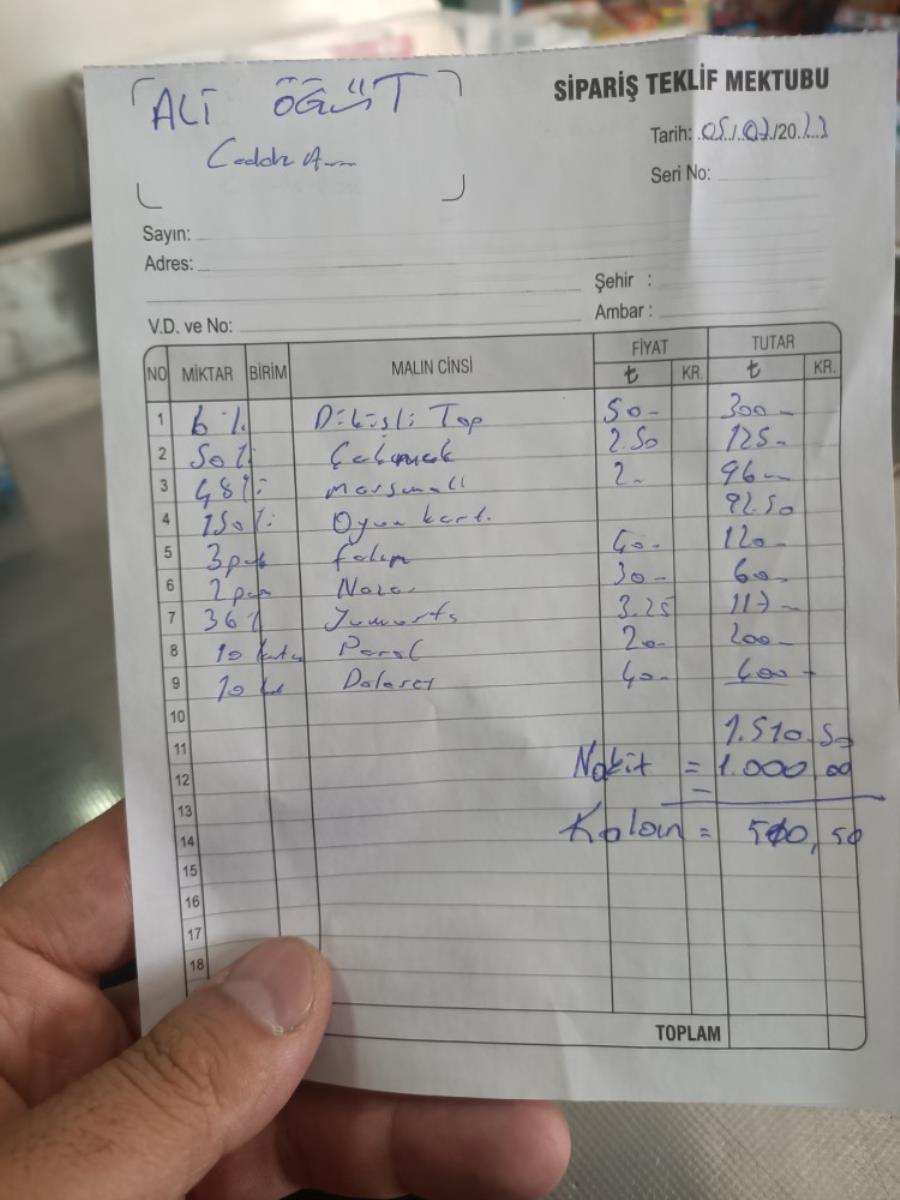 ALİ ÖĞÜT
SİPARİŞ TEKLİF MEKTUBU
Tarih: 05/07/20
Seri No:
Sayın:
Adres:
Şehir :
V.D. ve No:
Ambar :
NO MİKTAR BİRİM MALIN CİNSİ FİYAT ₺ KR. TUTAR ₺ KR.
1 6 Dikişli Top 50- 300-
2 50 2.50 125-
3 48 2- 96-
4 150 Oyun kart. 92.50
5 3 falım 40- 120-
6 2 30- 60-
7 36 Yumurta 3.25 117-
8 10 kutu 20- 200-
9 10 40- 400-
10
11 1.510.50
12 Nakit = 1.000,00
13
14 Kalan = 510,50
15
16
17
18
TOPLAM